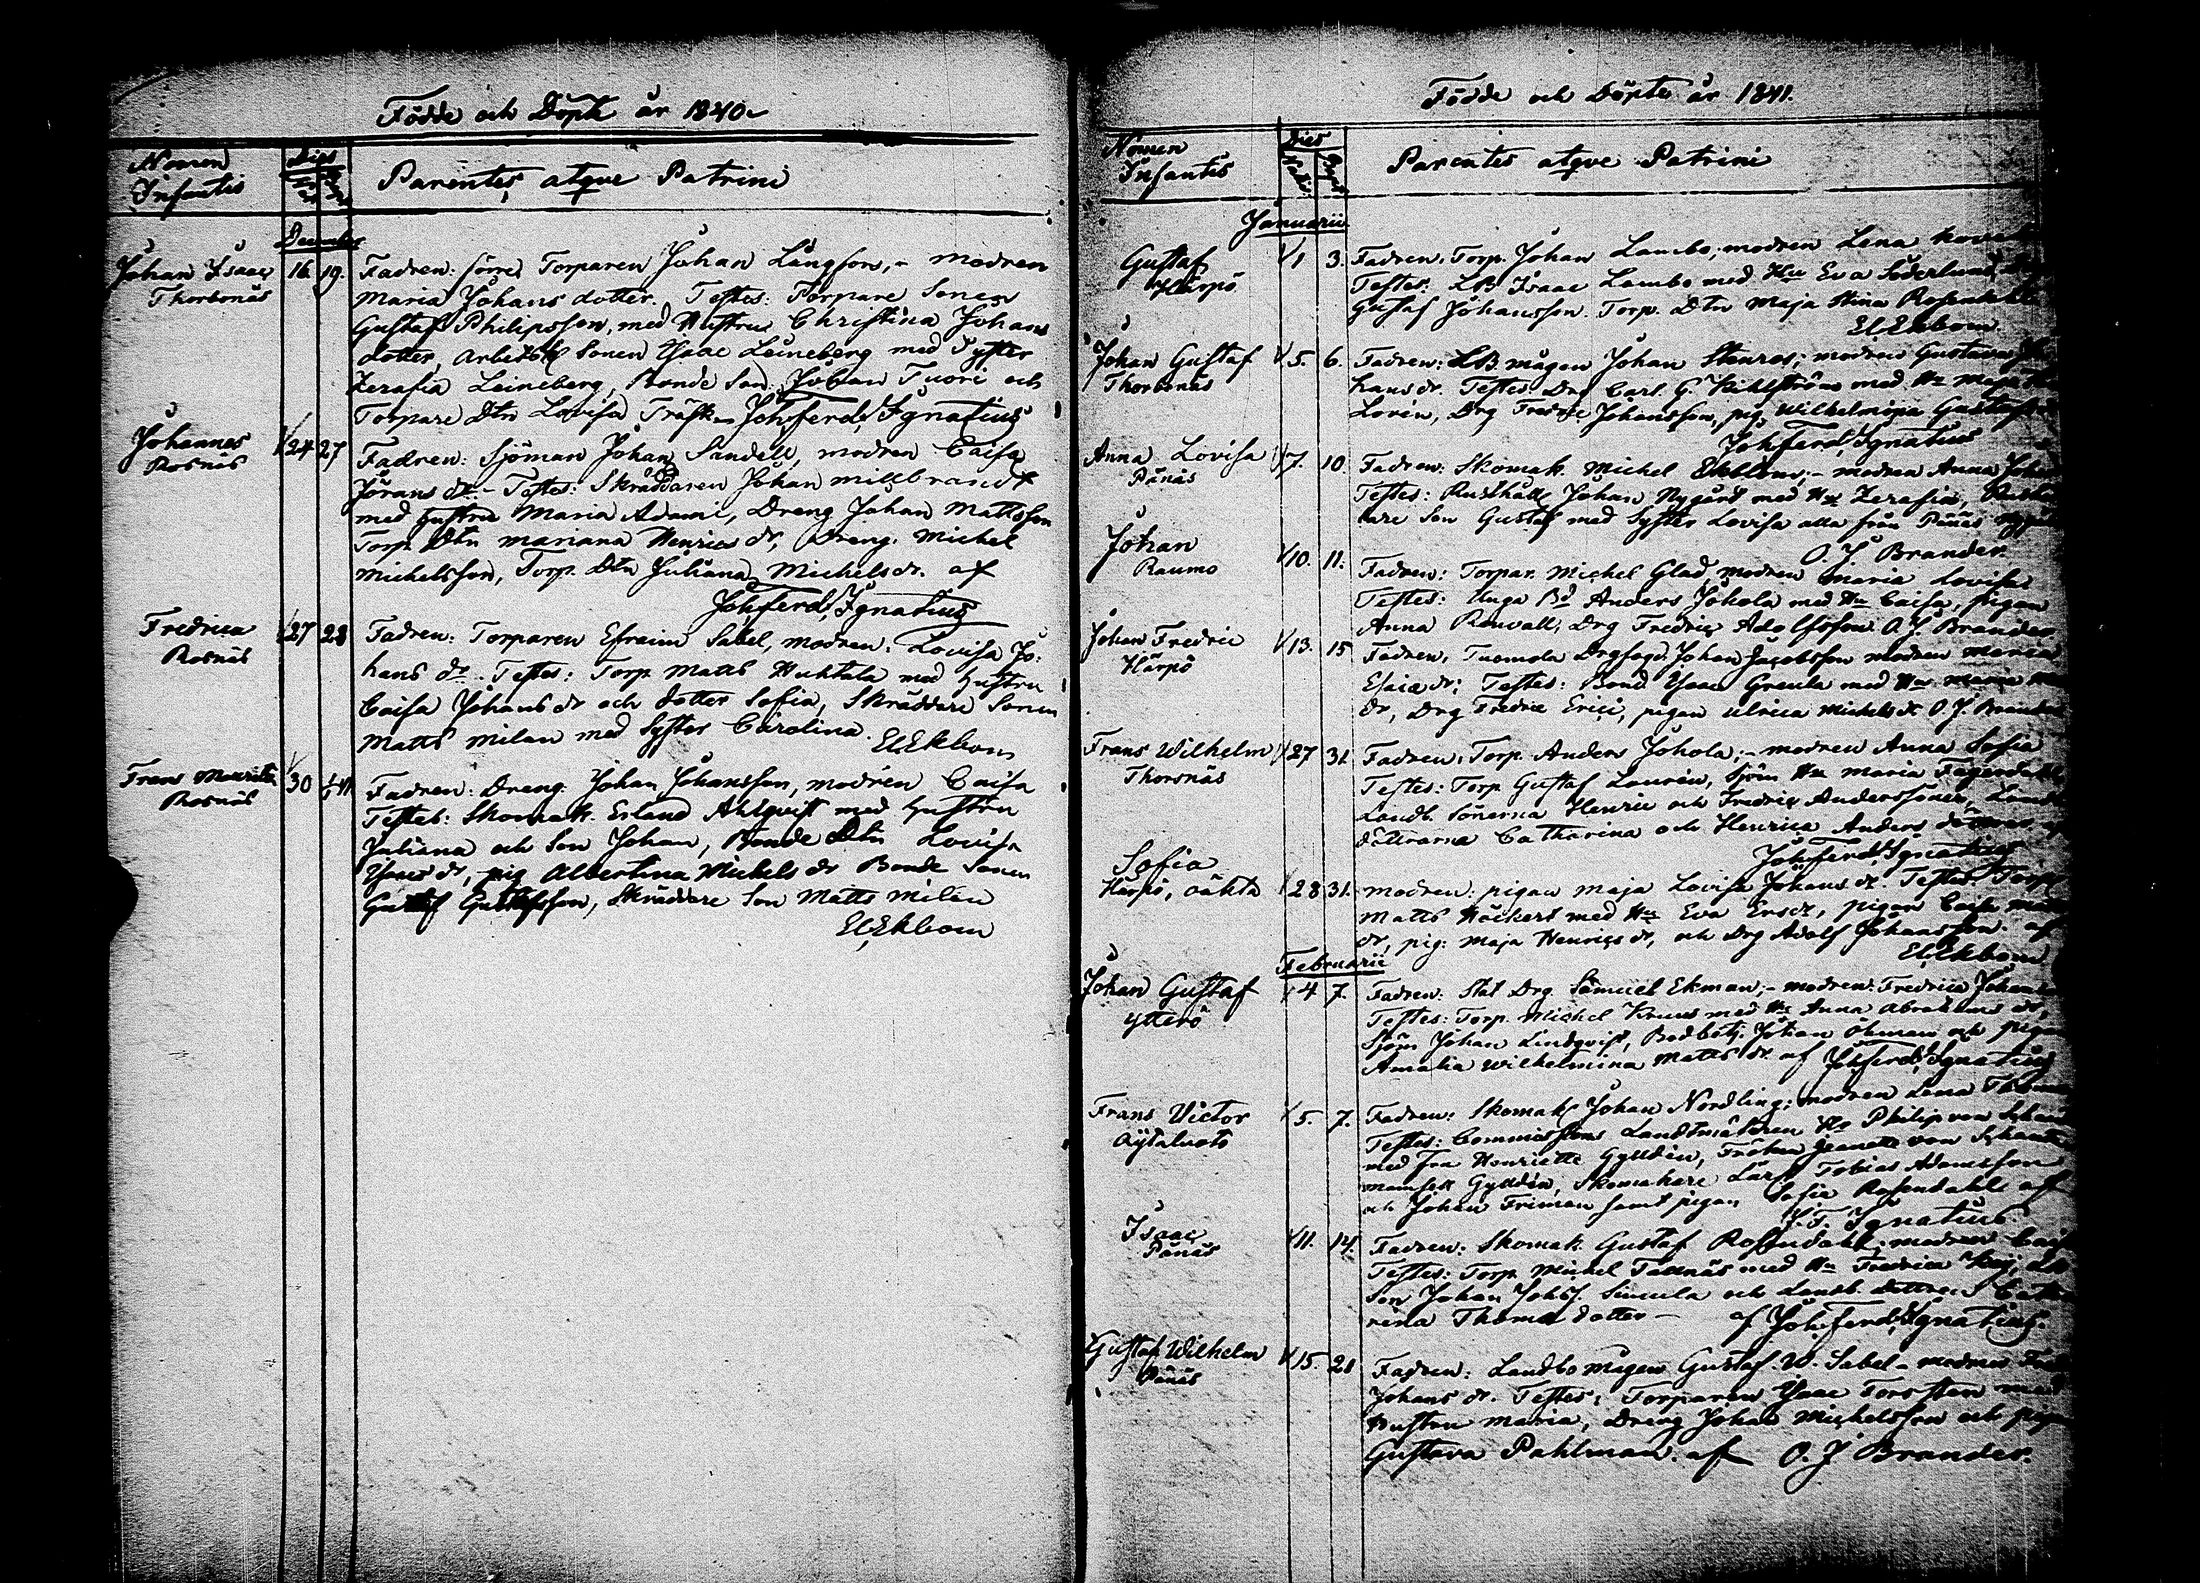 Födde och Döpte år 1840
Nomen Infantis
Dies
Parentes atqve Patrini
December
Johan Isaac
Thorbonäs
16. 19.
Fadren: förre Torparen Johan Långfors, - modren
Maria Johans dotter. Testes: Torpare Sonen
Gustaf Philipsson, med Hustru Christina Johans
dotter, Arbetsk Sonen Isaac Leineberg med Syster
Serafia Leineberg, Bonde Son: Johan Tuori och
Torpare Dtn Lovisa Träsk - Joh. Ferd. Ignatius
Johannes
Rosnäs
24 27
Fadren: Sjöman Johan Sandell, modren Caisa
Jörans dr. - Testes: Skräddaren Johan Millbrandt
med Hustru Maria Adami, Dreng Johan Mattsson
Torp. Dtn Mariana Henrics dr, Dreng. Michel
Michelsson, Torp. Dtn Juliana Michels dr. af
Joh. Ferd. Ignatius
Fredrica
Rosnäs
27 28
Fadren: Torparen Efraim Sabel, modren: Lovisa Jo-
hans dr. Testes: Torp. Matts Huhtala med Hustru
Caisa Johans dr och dotter Sofia, Skräddare Sonen
Matts Milan med Syster Carolina. El. Ekbom
Frans Mauritz
Rosnäs
30
Fadren: Dreng Johan Johansson, modren Caisa
Testes: Skomak. Erland Ahlqvist med Hustru
Juliana och Son Johan, Bonde Dtn Lovisa
dr, pig Albertina Michels dr Bonde Sonen
Gustaf Gustafsson, Skräddare Son Matts Milan
El. Ekbom
Födde och Döpte år 1841.
Nomen Infantis
Dies
Nativ. Bapt.
Parentes atqve Patrini
Januarii
Gustaf
Härpö
1 3.
Fadren: Torp. Johan Lambo; modren Lena
Testes: LB Isaac Lambo med Hu Eva Söderlund,
Gustaf Johansson. Torp. Dtn Maja Stina Rosendahl
El. Ekbom.
Johan Gustaf
Thorbonäs
5. 6.
Fadren: LB mågen Johan Stenroos; modren Gustava Jo-
hans dr. Testes Drg Carl G. Kihlström med Hu Maja
Lovén, Drg Fredric Johansson, pig. Wilhelmina
Joh. Ferd. Ignatius
Anna Lovisa
Pänäs
7. 10.
Fadren: Skomak. Michel Ekblom; - modren Anna
Testes: Rusthåll. Johan Nygård med Hu Serafia,
lare Son Gustaf med Syster Lovisa alla från Pänäs
O. J. Brander
Johan
Raumo
10. 11.
Fadren: Torpar. Michel Glad, modren Maria Lovisa
Testes: Unga Bd Anders Johola med Hu Caisa, pigan
Anna Renvall, Drg Fredric Adolfsson. O. J. Brander
Johan Fredric
Härpö
13. 15
Fadren: Tuomola Drgfogd. Johan Jacobsson modren Maria
Esaiæ dr; Testes: Bond. Isaac Greula med Hu Maria
dr, Drg Fredric Erici, pigan Ulrica Michels dr O. J. Brander
Frans Wilhelm
Thorsnäs
27 31
Fadren: Torp. Anders Johola; - modren Anna Sofia
Testes: Torp. Gustaf Laurén, Sjöm. Hu Maria Fagerdahl
Landb. Sönerna Henric och Fredric Anderssöner,
döttrarne Catharina och Henrica Anders döttrar,
Joh. Ferd. Ignatius
Sofia
Härpö, oäkta
28 31.
modren: pigan Maja Lovisa Johans dr. Testes: Torp.
Matts Häckert med Hu Eva Ers dr, pigan Caisa
dr, pig. Maja Henrics dr, och Drg Adolf Johansson. af
El. Ekbom
Februarii
Johan Gustaf
Ytterö
4 7.
Fadren: Stat Drg Samuel Ekman, - modren: Fredrica
Testes: Torp. Michel Kruus med Hu Anna Abrahams dr,
Sjöm Johan Lindqvist, Bodbetj. Johan Öhman och pigan
Amalia Wilhelmina Matts dr. af Joh. Ferd. Ignatius
Frans Victor
5. 7.
Fadren: Skomak. Johan Nordling; modren Lena
Testes: Commissions Landtmätaren Hr Philip von
med Fru Henriette Gyldén, Fröken Jeanette von
Mamsell Gyldén, Skomakare Lärl. Tobias Adamsson
och Johan Friman samt pigan Sofia Rosendahl af
J. F. Ignatius
Isaac
Pänäs
11. 14.
Fadren: Skomak. Gustaf Rosendahl, modren
Testes: Torp. Michel Tallnäs med Hu Fredrica
Son Johan Johss. Simula och Landb. Dottren Catha-
rina Thomæ dotter - af Joh. Ferd. Ignatius.
Gustaf Wilhelm
Pänäs
15. 21
Fadren: Landbo mågen Gustaf W. Sabel - modren
Johans dr. Testes: Torparen Isaac Forsten med
Hustru Maria, Dreng Johan Michelsson och pigan
Gustava Pahlman. af O. J. Brander.